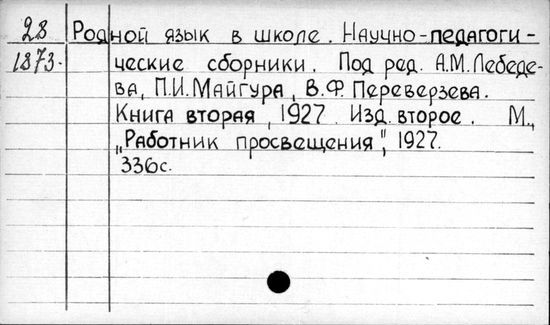 28 Родной язык в школе. Научно-педагоги-
1873. ческие сборники. Под ред. А.М. Лебеде-
ва, П.И. Майгура, В.Ф. Переверзева.
Книга вторая, 1927. Изд. второе. М.,
„Работник просвещения", 1927.
336с.